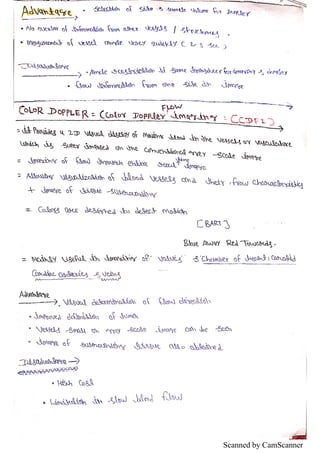 Advantage • Selection of site & sample volume for doppler
• No overlap of information from other vessels / structures.
• Measurement of vessel made very quickly (2 sec)
Disadvantage
• Angle restriction if same transducer for imaging & doppler
• flow information from one site in image
FLOW
COLOR DOPPLER = (Color DOPPLER Imaging : (CDFI)
= It Provides a 2D visual display of moving blood in the vessels or vasculature
which is super imposed on the conventional grey-scale image
= Imaging of flow through entire real time image
= Allowing visualization of blood vessels and their flow characteristics
+ image of tissue surrounding
= Colors are designed to detect motion
[BART]
Blue Away Red Towards.
= Mostly useful in imaging of valves & chamber of heart, carotid
Advantage → • Visual determination of flow direction
• Improved definition of lumen
• Vessels small on grey scale image can be seen
• Image of surrounding tissue also obtained
Disadvantage →
• High Cost
• Limitation in slow blood flow
Scanned by CamScanner